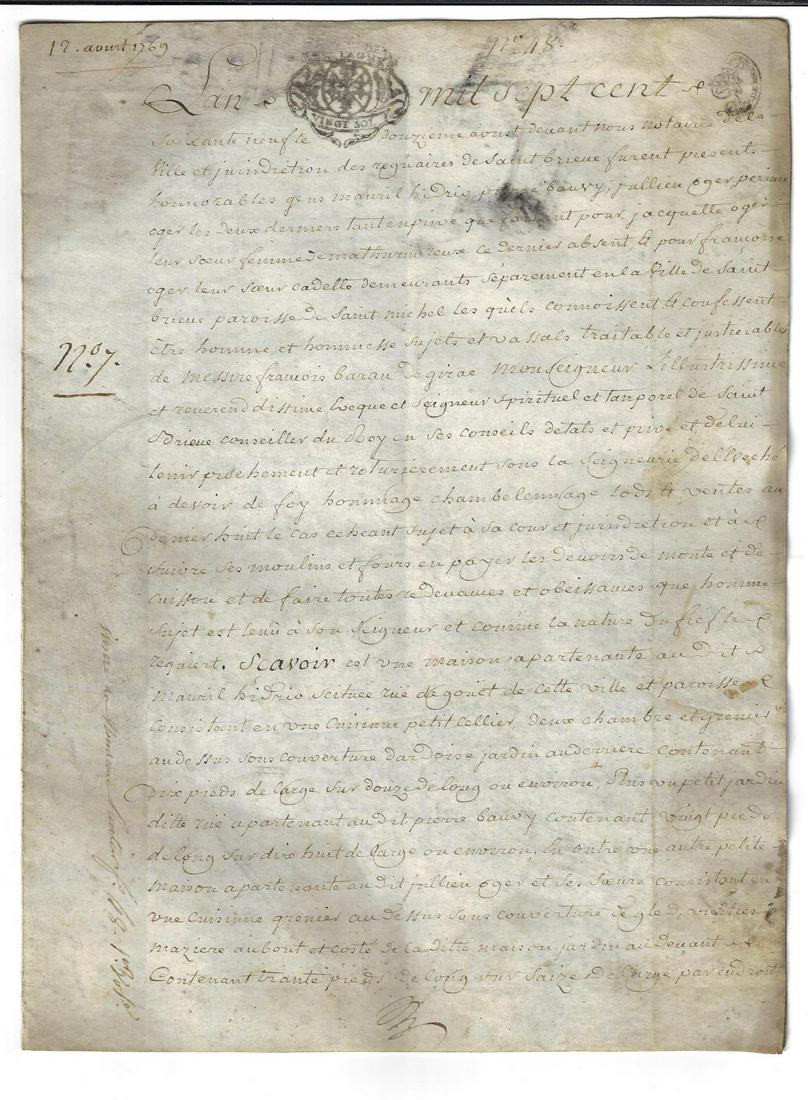 12. aoust 1769
nº 48.
Lan mil sept cent
VINGT SOL
soixante neuf le douzieme aoust devant nous notaires de la
Ville et jurisdiction des reguaires de Saint brieuc furent presents
honnorables gens mauril hidrio pierre bauvy, jullien oger, perinne
oger les deux derniers tant en privé que faisant pour jacquette oger
leur sœur femme de mathurin reux ce dernier absent & pour françoise
oger leur sœur cadette demeurants séparement en la Ville de Saint
brieuc paroisse de Saint michel les quels connoissent & confessent
être homme et hommesse sujets et vassals traitable et justiciables
nº 7.
de messire francois barau de girac Monseigneur Lillustrissime
et reverendissime Eveque et Seigneur spirituel et tanporel de Saint
Brieuc conseiller du Roy en ses conseils détats et privé et de lui
tenir prochement et roturierement sous la Seigneurie de l'Eveché
à devoir de foy hommage chambelennage lods & ventes au
denier huit le cas echeant sujet à sa cour et jurisdiction et à
suivre ses moulins et fours en payer les devoirs de monte et de
cuisson et de faire toutes redevances et obeissances que homme
sujet est tenû à son Seigneur et comme la nature du fief le
requiert. Scavoir est une maison apartenante au dit
mauril hidrio scituée rüe de goüet de cette ville et paroisse
Consistant en une cuisinne petit cellier, deux chambre et grenier
au dessus sous couverture dardoise jardin au derriere contenant
dix pieds de large sur douze de long ou environ, Plus un petit jardin
ditte rüe apartenant au dit pierre bauvy contenant vingt pieds
de long sur dix huit de large ou environ. En outre une autre petite
maison apartenante au dit jullien oger et ses sœurs consistant en
une cuisinne grenier au dessus sous couverture de gled, vieilles
maziere au bout et costé de la ditte maison jardin au devant
Contenant trante pieds de long sur saize de large par endroit